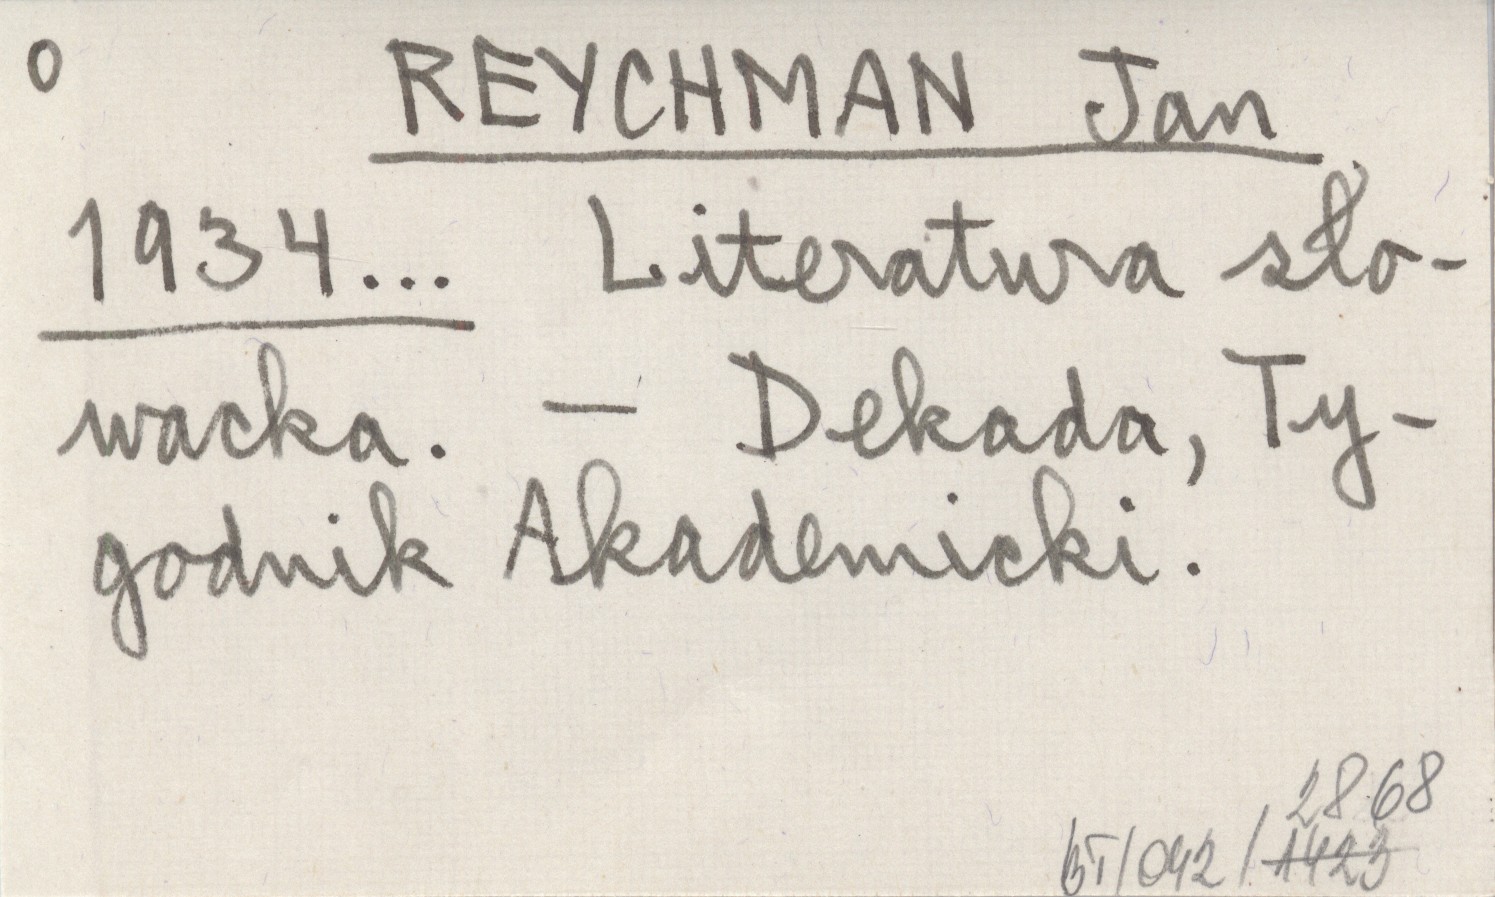 0 REYCHMAN Jan
1934... Literatura sło-
wacka. — Dekada, Ty-
godnik Akademicki.
2868
BT/042/1423